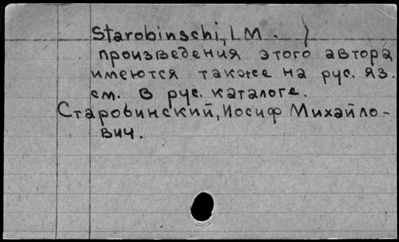 Starobinschi, I.M.
произведения этого автора
имеются также на рус. яз.
см. в рус. каталоге.
Старобинский, Иосиф Михайло-
вич.